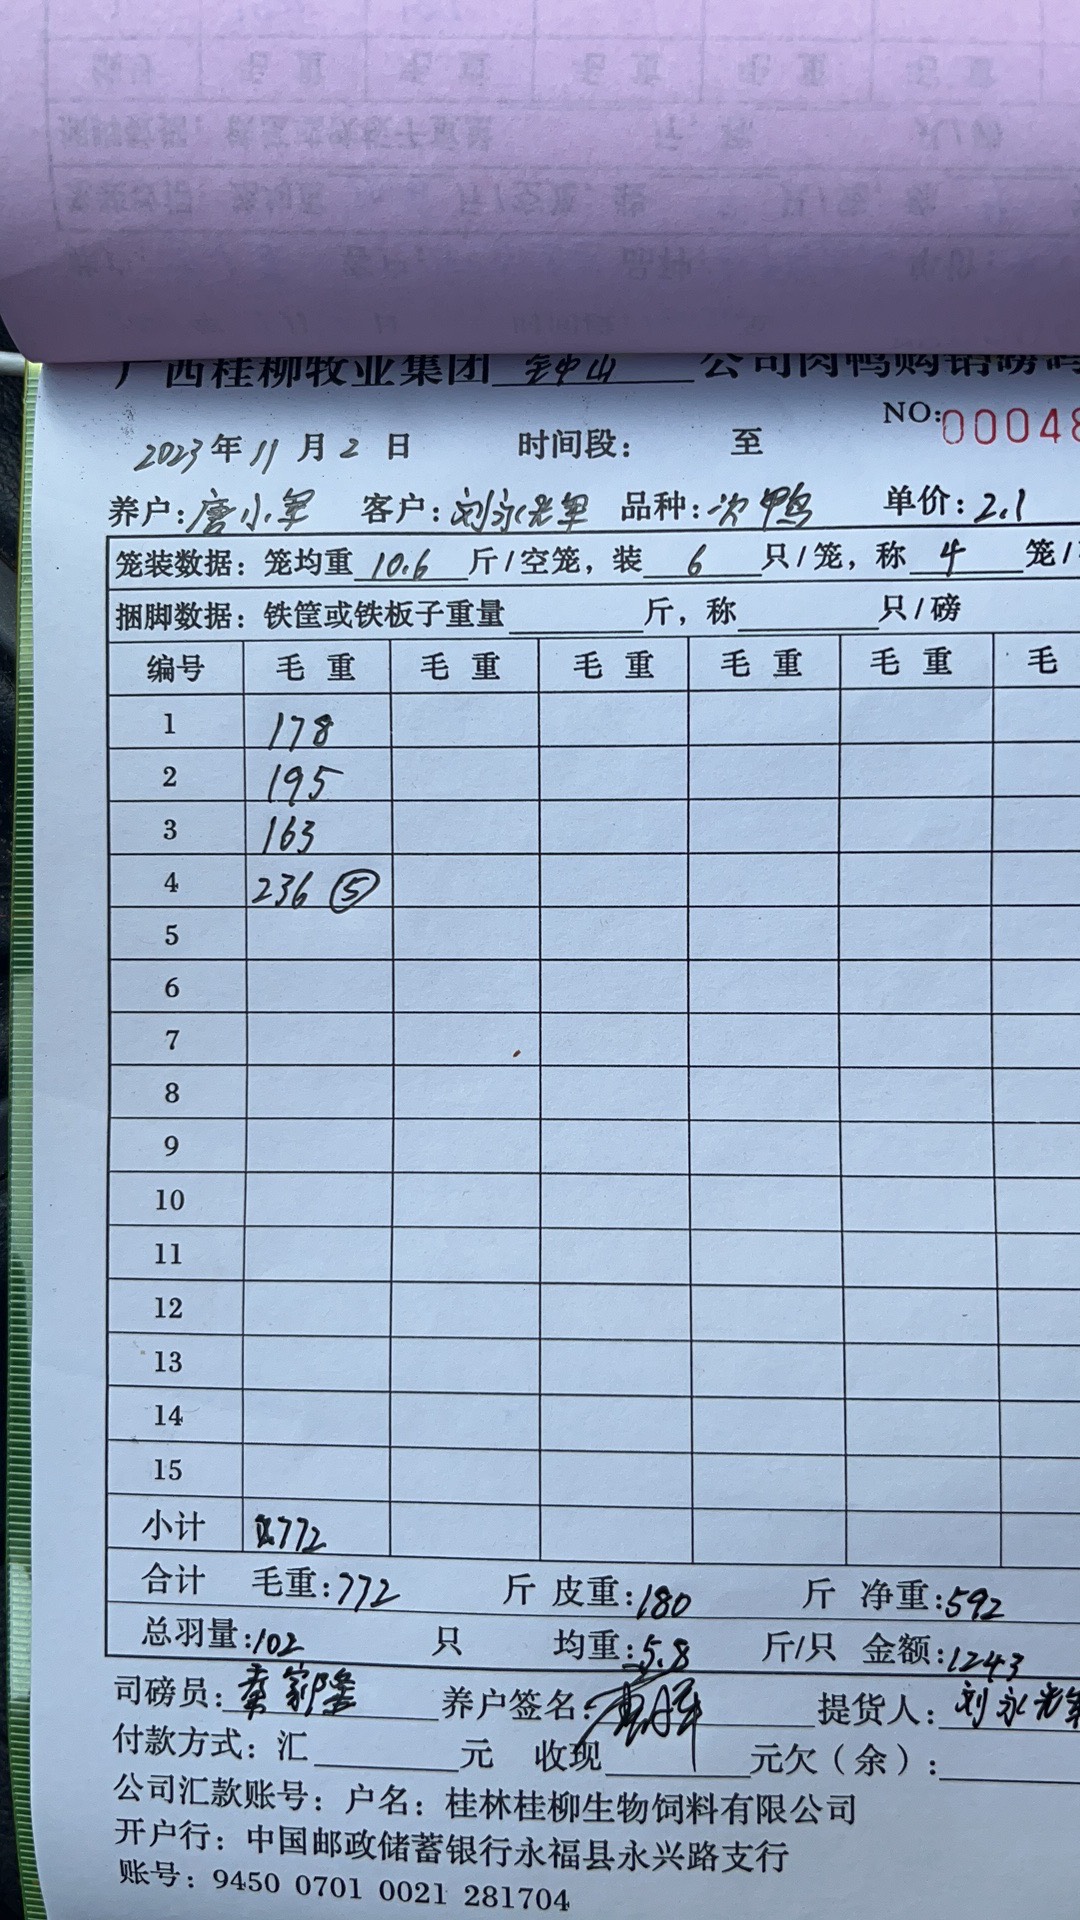 广西桂柳牧业集团 钟山 公司肉鸭购销磅码
NO:00048
2023年11月2日 时间段: 至
养户:唐小军 客户:刘永光军 品种:次鸭 单价:2.1
笼装数据:笼均重10.6斤/空笼,装6只/笼,称4笼/
捆脚数据:铁筐或铁板子重量 斤,称 只/磅
编号 毛重 毛重 毛重 毛重 毛重 毛
1 178
2 195
3 163
4 236 ⑤
5
6
7
8
9
10
11
12
13
14
15
小计 772
合计 毛重:772 斤 皮重:180 斤 净重:592
总羽量:102 只 均重:5.8 斤/只 金额:1243
司磅员:秦家隆 养户签名: 提货人:刘永光军
付款方式:汇 元 收现 元欠(余):
公司汇款账号:户名:桂林桂柳生物饲料有限公司
开户行:中国邮政储蓄银行永福县永兴路支行
账号:9450 0701 0021 281704